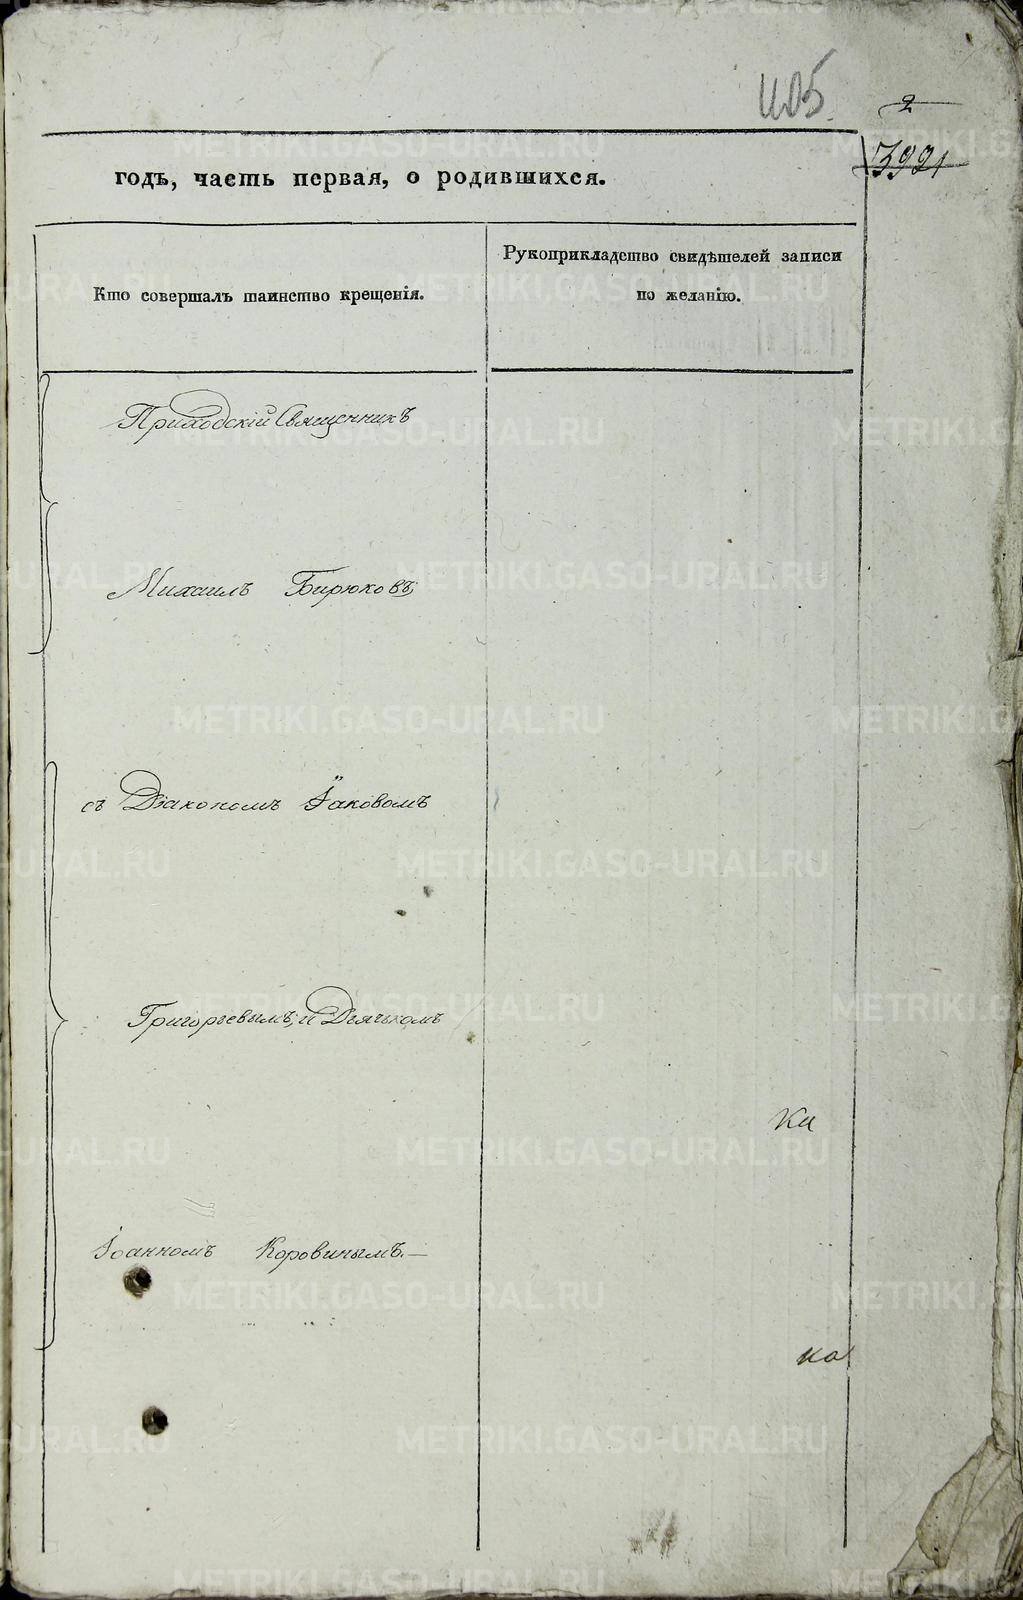 2
3921
годъ, часть первая, о родившихся.
Кто совершалъ таинство крещенія.
Рукоприкладство свидѣтелей записи
по желанію.
Приходскій Священникъ
Михаилъ Бирюковъ
съ Діакономъ Іаковомъ
Григорьевымъ, и Дьячкомъ
Ка
Іоанномъ Коровинымъ.—
ка
METRIKI.GASO-URAL.RU